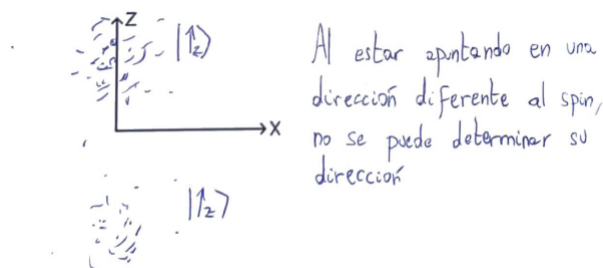 Z
|↑z⟩
X
Al estar apuntando en una
dirección diferente al spin,
no se puede determinar su
dirección
|↑z⟩